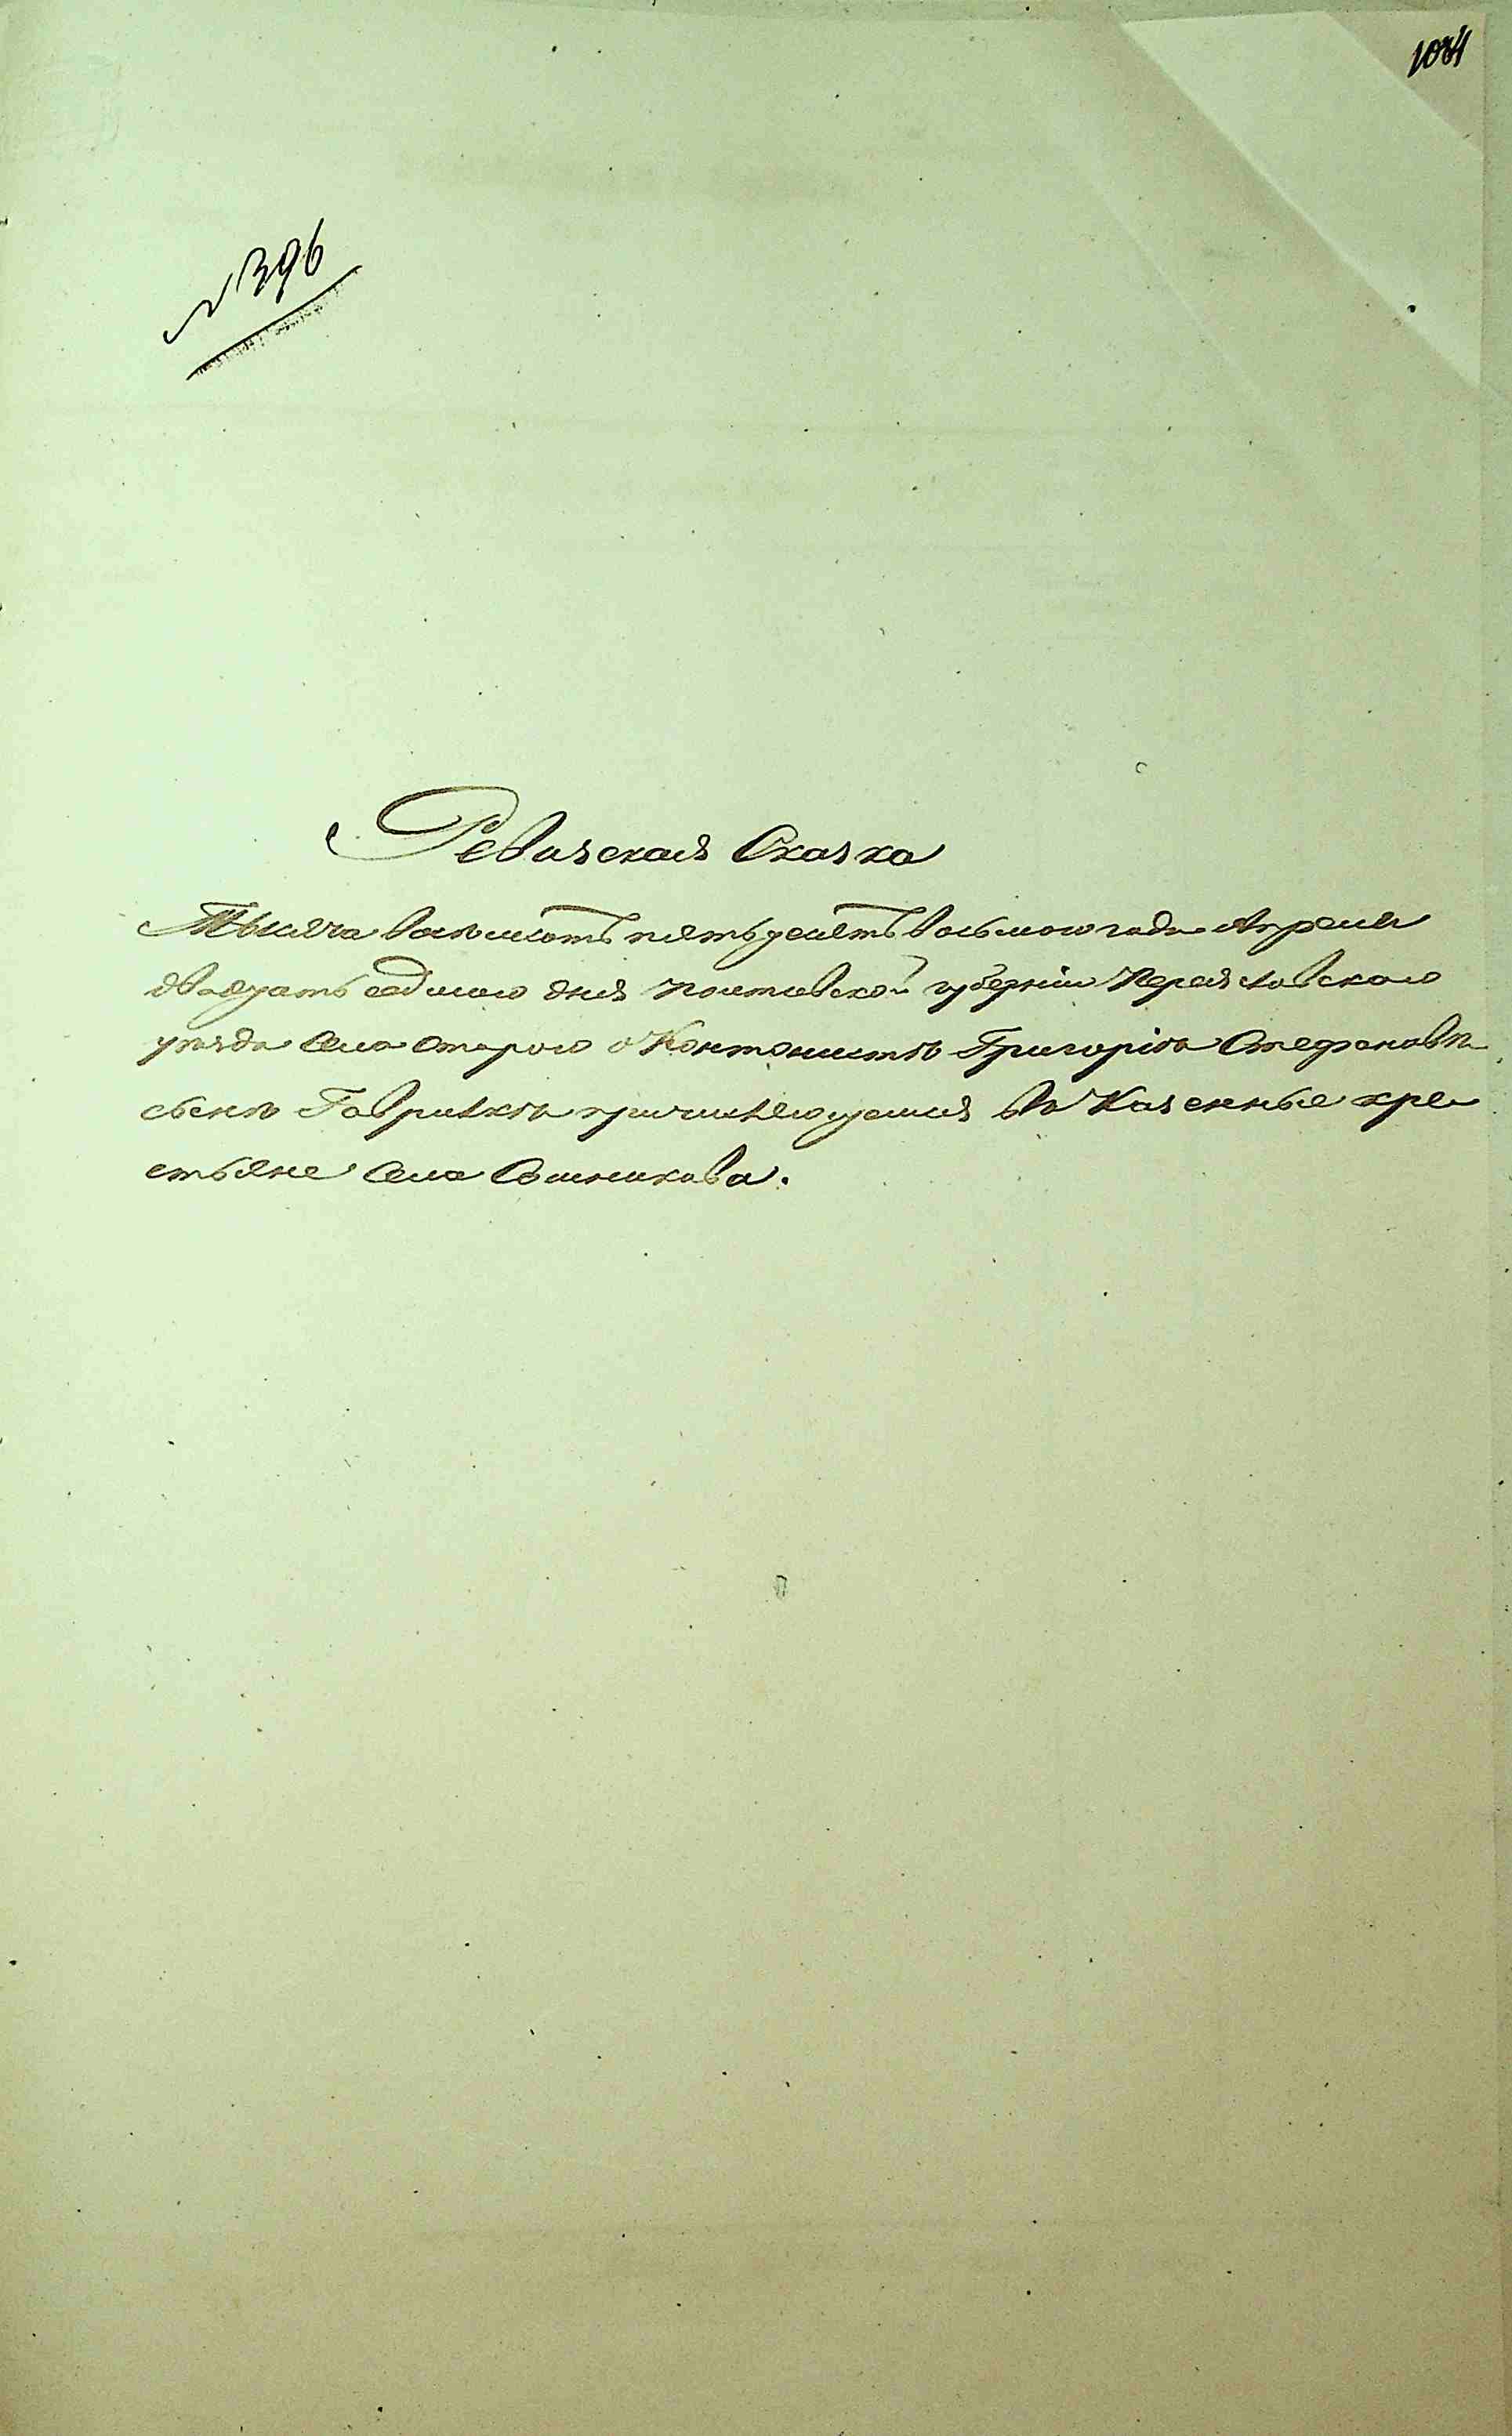 1031
№ 396
Ревизская Сказка
Тысяча восемьсотъ пятьдесятъ восьмого года Апреля
двадцать седьмого дня Полтавской губерніи Переяславского
уѣзда села Старого о Кантонистѣ Григоріѣ Стефановѣ
сынѣ Гаврилкѣ причисляющемся въ Казенные кре
стьяне села Сошникова.